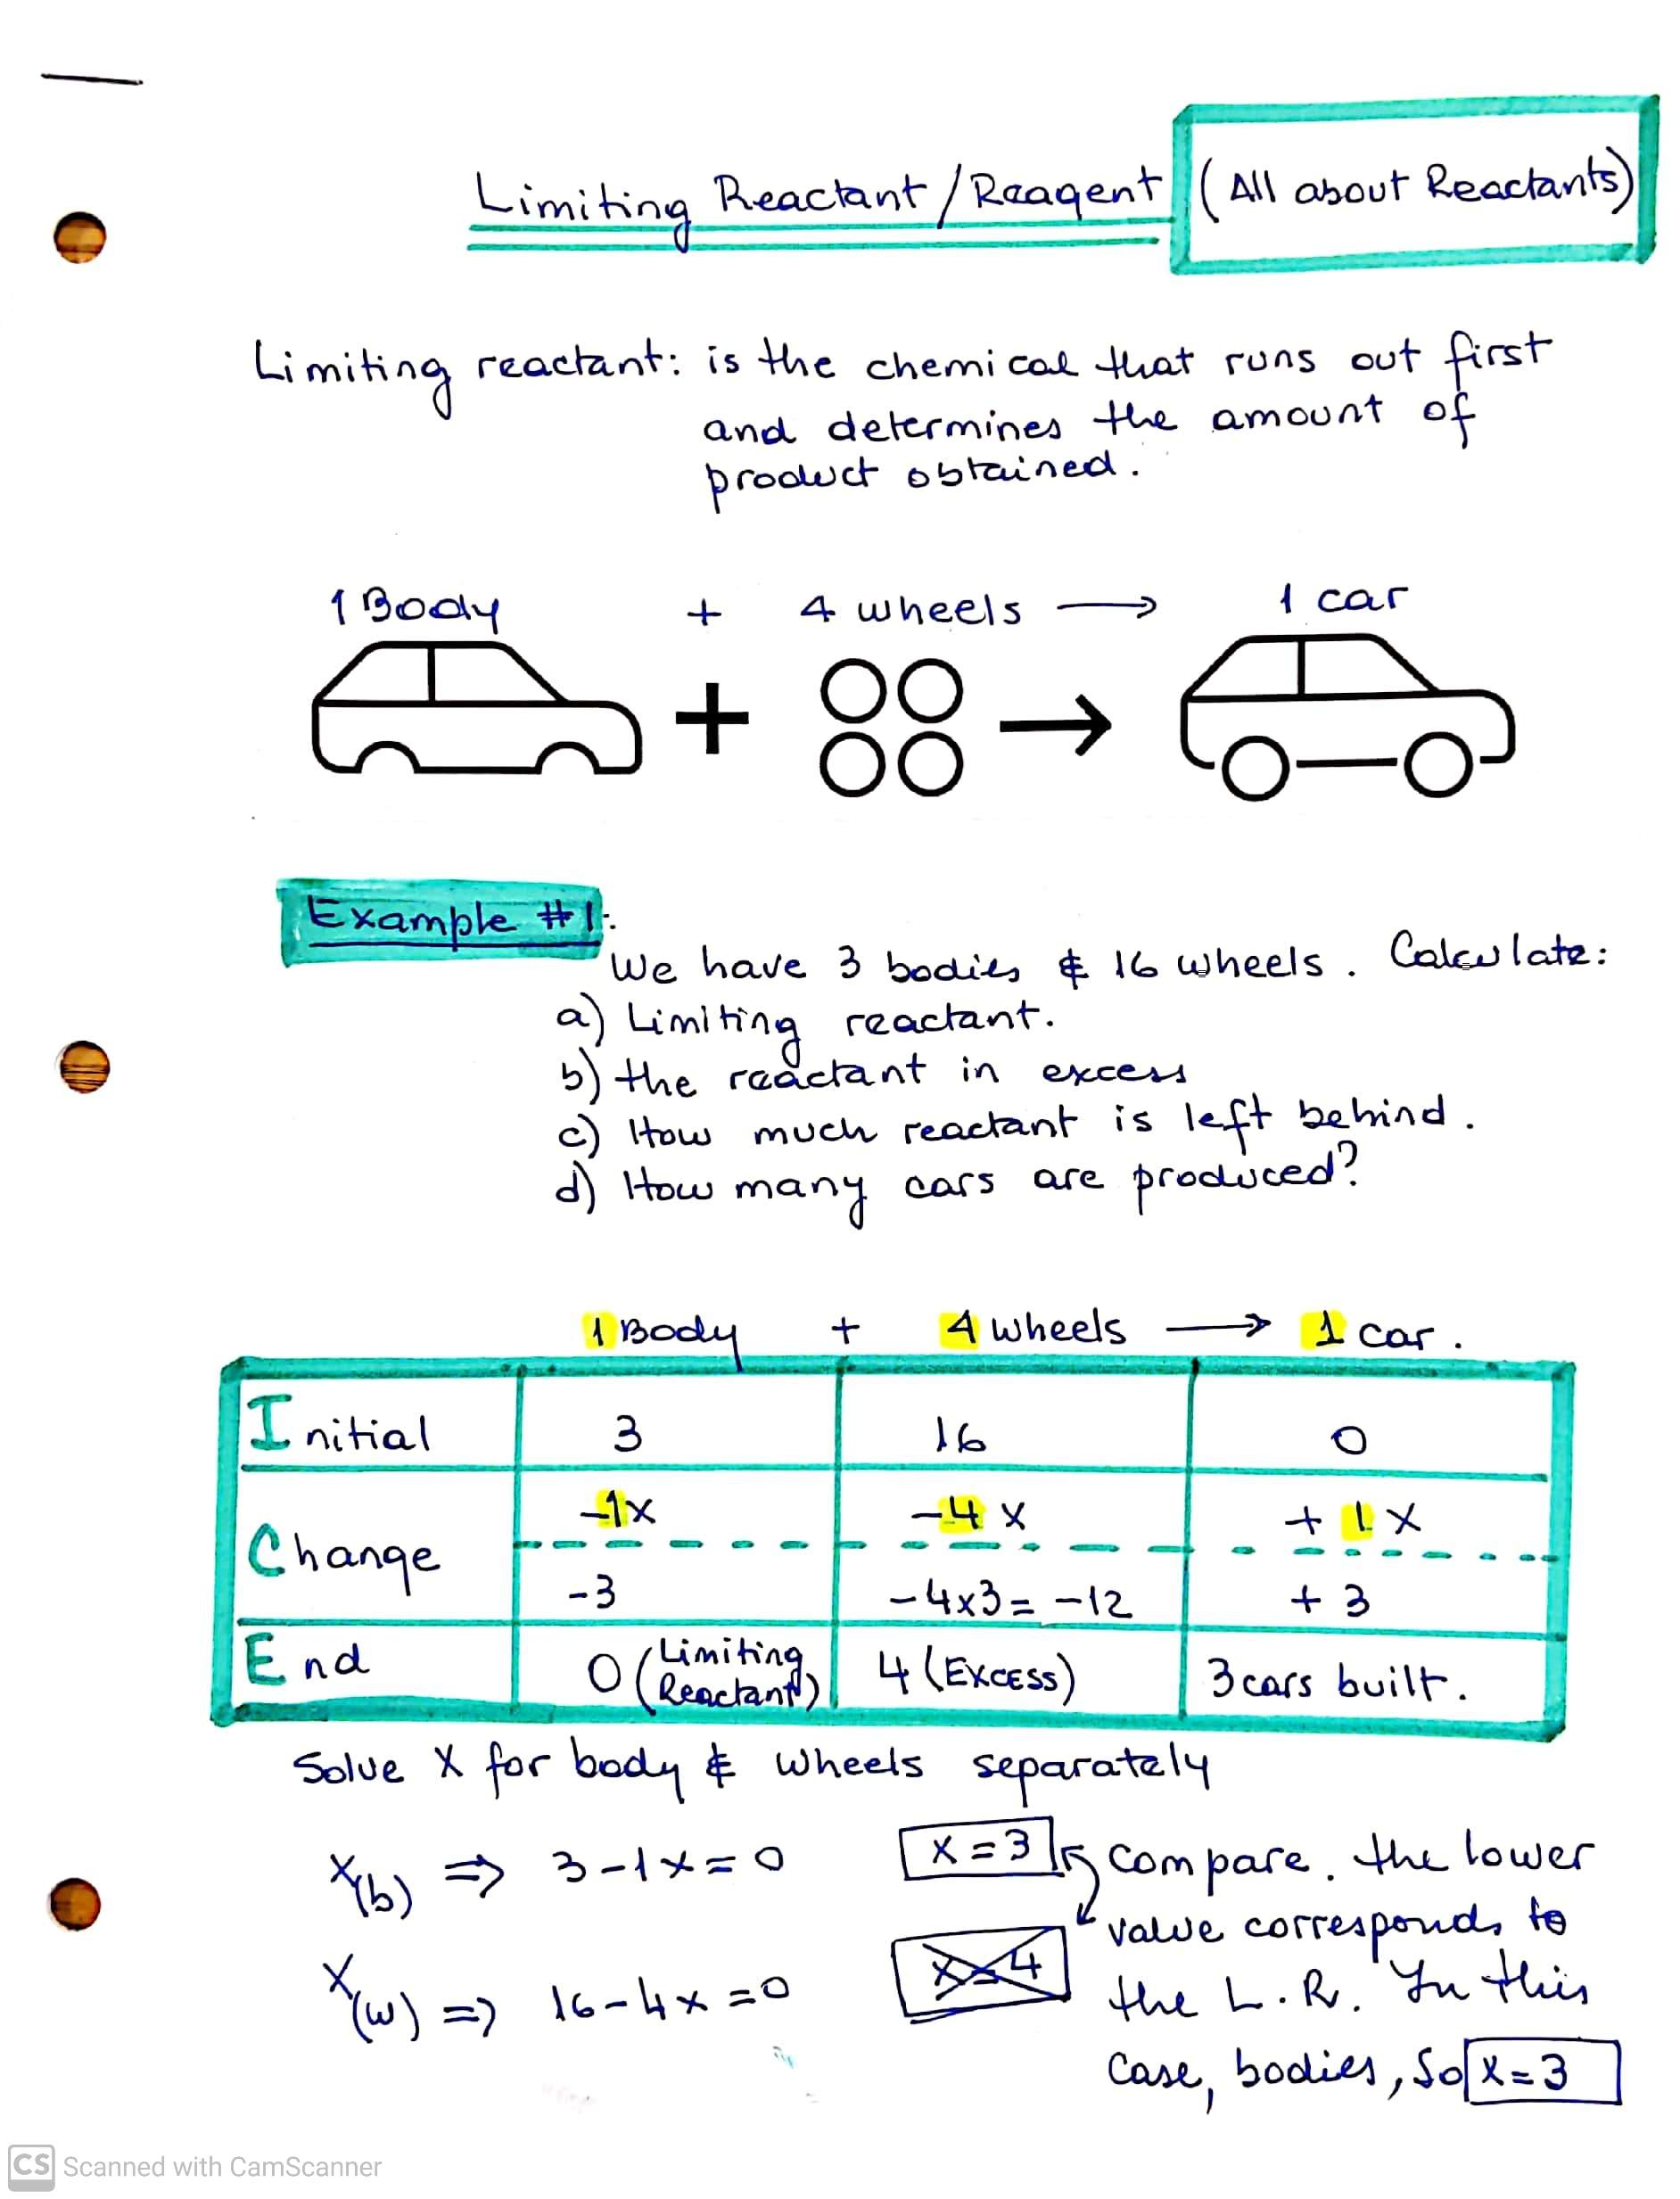 Limiting Reactant/Reagent (All about Reactants)
Limiting reactant: is the chemical that runs out first
and determines the amount of
product obtained.
1 Body + 4 wheels → 1 car
+ →
Example #1:
We have 3 bodies & 16 wheels. Calculate:
a) Limiting reactant.
b) the reactant in excess
c) How much reactant is left behind.
d) How many cars are produced?
1 Body + 4 wheels → 1 car.
Initial 3 16 0
Change -1x -4x +1x
-3 -4x3= -12 +3
End 0 (Limiting Reactant) 4 (Excess) 3 cars built.
Solve x for body & wheels separately
x(b) ⇒ 3-1x=0 x=3 compare. the lower
value corresponds to
x(w) ⇒ 16-4x=0 x=4 the L.R. In this
case, bodies, so x=3
CS Scanned with CamScanner